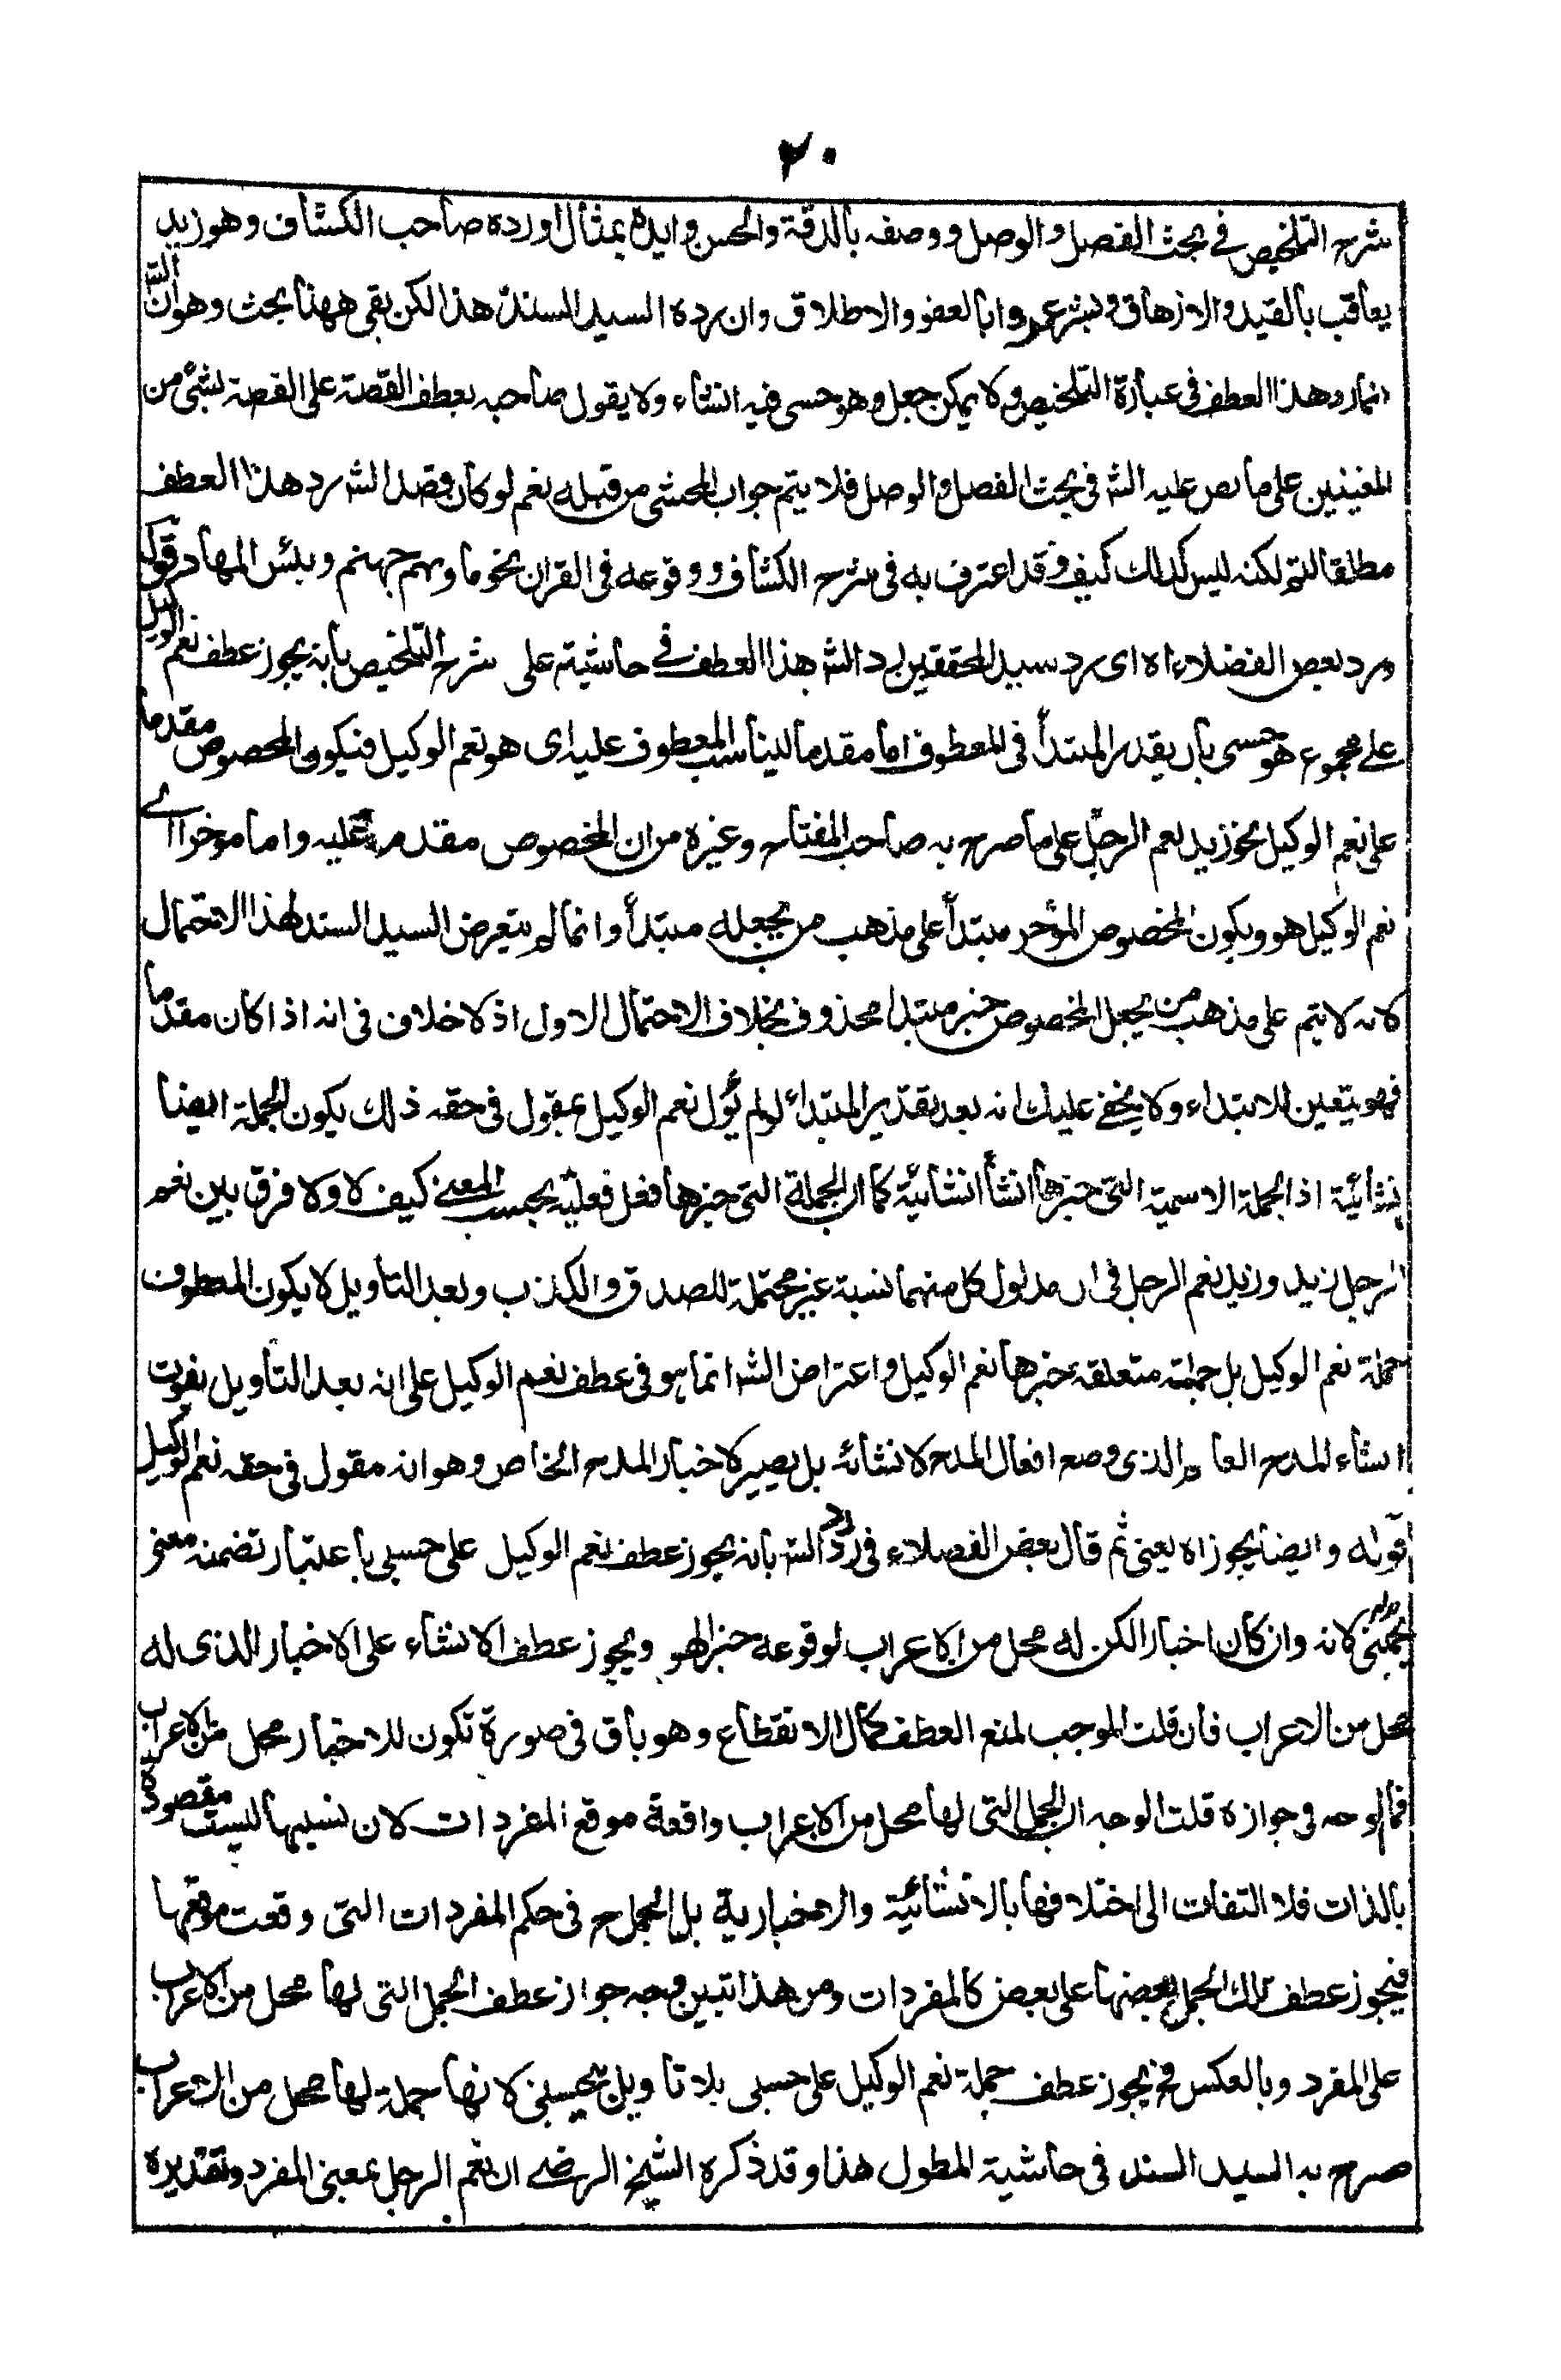 ٢٠
شرح التلخيص في بحث الفصل والوصل ووصفه بالدقة والحسن وايده بمثال اورده صاحب الكشاف وهو زيد
يعاقب بالقيد والازهاق وبشر عمروا بالعفو والاطلاق وان رده السيد السند هذا لكن بقى ههنا بحث وهو ان الش
انما رد هذا العطف في عبارة التلخيص ولا يمكن جعل وهو حسبى فيه انشاء ولا يقول صاحبه بعطف القصة على القصة بشئ من
المعنيين على ما نص عليه الش في بحث الفصل والوصل فلا يتم جواب المحشى من قبله نعم لو كان قصد الش رد هذا العطف
مطلقا لتم لكنه ليس كذلك كيف وقد اعترف به فى شرح الكشاف ووقوعه فى القران نحو ماوىهم جهنم وبئس المهاد قوله
ورد بعض الفضلاء اه اى رد سيد المحققين رد الش بهذا العطف في حاشيته على شرح التلخيص بانه يجوز عطف نعم الوكيل
على مجموع هو حسبى بان يقدر المبتدأ فى المعطوف اما مقدما ليناسب المعطوف عليه اى هو نعم الوكيل فيكون المخصوص مقدما
على نعم الوكيل نحو زيد نعم الرجل على ما صرح به صاحب المفتاح وغيره من ان المخصوص مقدم عليه واما موخرا اے
نعم الوكيل هو ويكون المخصوص المؤخر مبتدأ على مذهب من يجعله مبتدأ وانما لم يتعرض السيد السند لهذا الاحتمال
لانه لا يتم على مذهب من يجعل المخصوص خبر مبتدا محذوف بخلاف الاحتمال الاول اذ لا خلاف فى انه اذا كان مقدما
فهو يتعين للابتداء ولا يخفے عليك انه بعد تقدير المبتداء لو لم يؤل نعم الوكيل بمقول فى حقه ذلك يكون الجملة ايضا
انشائية اذ الجملة الاسمية التى خبرها انشأ انشائية كما ان الجملة التى خبرها فعل فعلية بحسب المعنے كيف لا ولا فرق بين نعم
الرجل زيد وزيد نعم الرجل فى ان مدلول كل منهما نسبة غير محتملة للصدق والكذب وبعد التاويل لا يكون المعطوف
جملة نعم الوكيل بل جملة متعلقة خبرها نعم الوكيل واعتراض الش انما هو فى عطف نعم الوكيل على انه بعد التأويل يفوت
انشاء المدح العام الذى وضع افعال المدح لانشائه بل يصير لاخبار المدح الخاص وهو انه مقول فى حقه نعم الوكيل
قوله وايضا يجوز اه يعنى ثم قال بعض الفضلاء فى رد الش بانه يجوز عطف نعم الوكيل على حسبى باعتبار تضمنه معنى
يحسبنى لانه وان كان اخبارا لكن له محل من الاعراب لوقوعه خبرا لهو ويجوز عطف الانشاء على الاخبار الذى له
محل من الاعراب فان قلت الموجب لمنع العطف كمال الانقطاع وهو باق فى صورة تكون للاخبار محل من الاعراب
فما الوجه فى جوازه قلت الوجه ان الجمل التى لها محل من الاعراب واقعة موقع المفردات لان نسبها ليست مقصودة
بالذات فلا التفات الى اختلافها بالانشائية والاخبارية بل الجمل ح فى حكم المفردات التى وقعت موقعها
فيجوز عطف تلك الجمل بعضها على بعض كالمفردات ومن هذا تبين وجه جواز عطف الجمل التى لها محل من الاعراب
على المفرد وبالعكس فح يجوز عطف جملة نعم الوكيل على حسبى بلا تاويل يحسبنى لانها جملة لها محل من الاعراب
صرح به السيد السند فى حاشية المطول هذا وقد ذكره الشيخ الرضے ان نعم الرجل بمعنى المفرد وتقديره